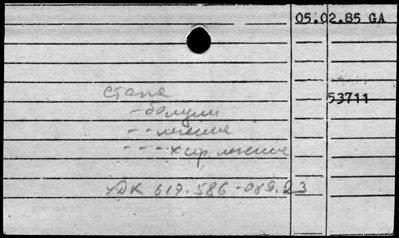 05.02.85 GA
53711
стопа
- болезни
- - лечение
- - - хир. лечение
УДК 617.586-089.23